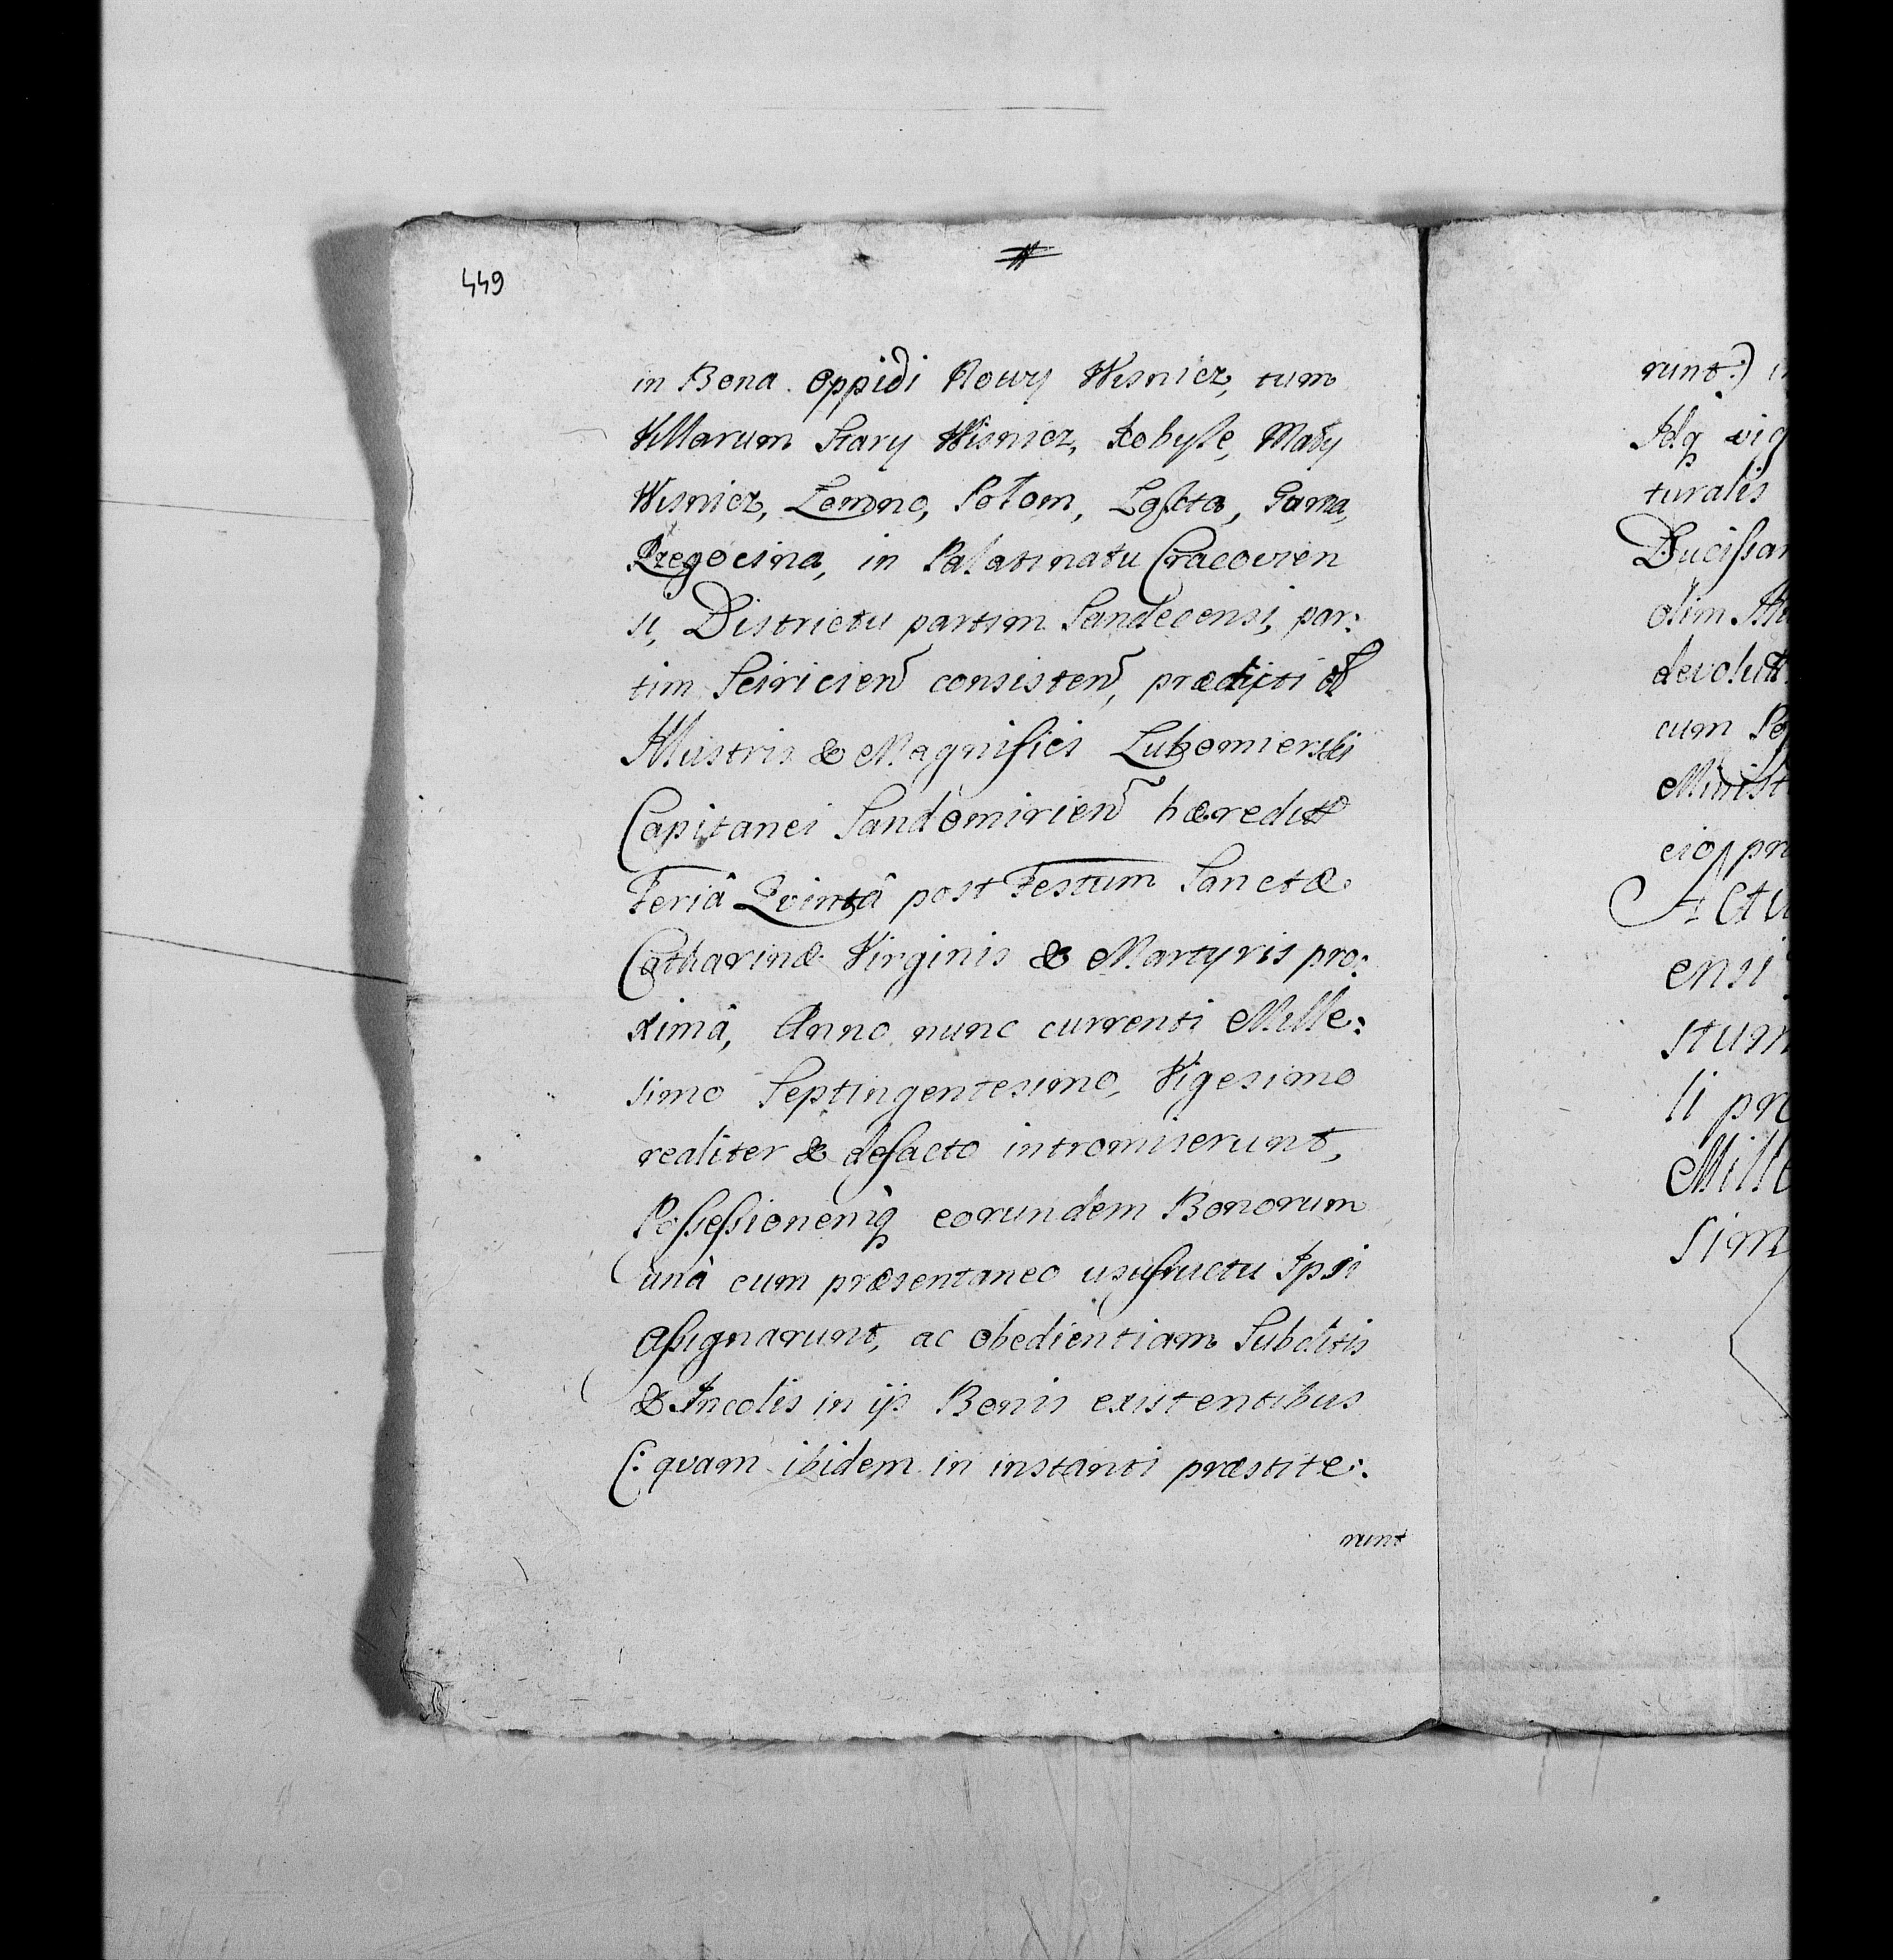 449
in Bona Oppidi Nowy Wisnicz, tum
Villarum Stary Wisnicz, Kobyłe, Mały
Wisnicz, Lomno, Połom, Lgſota,
Rzegocina, in Palatinatu Cracovien
si, Districtu partim Sandecensi, par:
tim Sciricien̄ consisten̄, prædicti
Illustris & Magnifici Lubomierski
Capitanei Sandomirien̄ hæredit
Feriâ Qvintâ post Festum Sanctæ
Catharinæ Virginis & Martyris pro:
ximâ, Anno nunc currenti Mille:
simo Septingentesimo, Vigesimo
realiter & defacto intromiserunt,
Poſseſsionemq́ eorundem Bonorum
unà cum præsentaneo usufructu Ipsi
Aſsignarunt, ac obedientiam Subditis
& Incolis in ijs Bonis existentibus
(: qvam ibidem in instanti præstite:
runt
runt:)
Idq vig
turalis
Duciſsam
olim
devolut
cum
Minist
cio pr
Actu
ensi
stum
li pro
Mille
sim